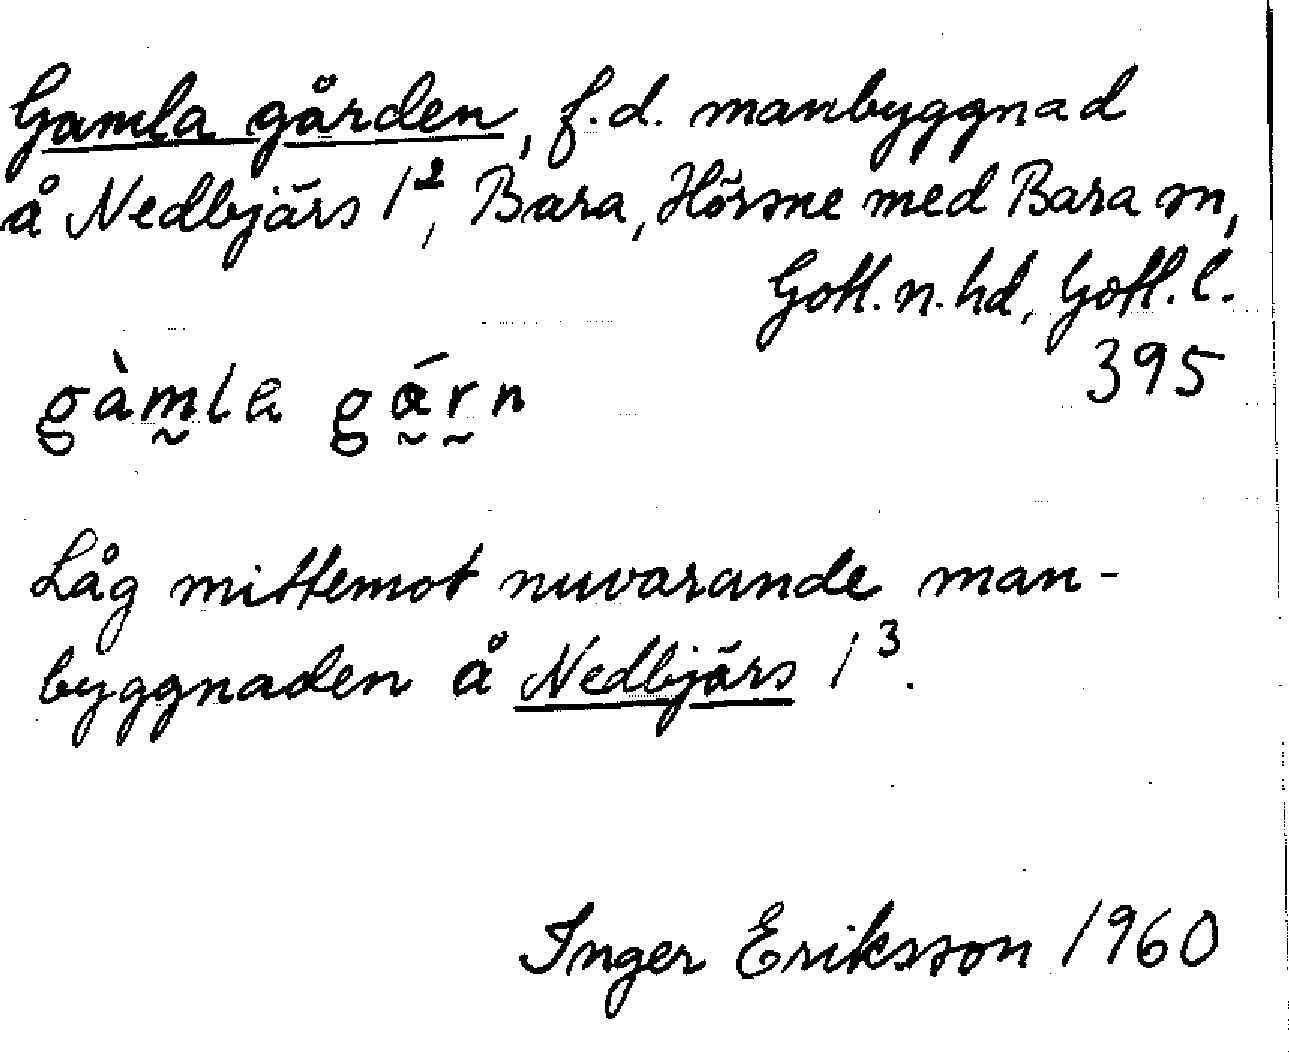 Gamla gården, f.d. manbyggnad
å Nedbjärs 1², Bara, Hörsne med Bara sn,
Gotl. n. hd, Gotl. l.
395
gàm̰la gá̰r̰n
Låg mittemot nuvarande man-
byggnaden å Nedbjärs 1³.
Inger Eriksson 1960